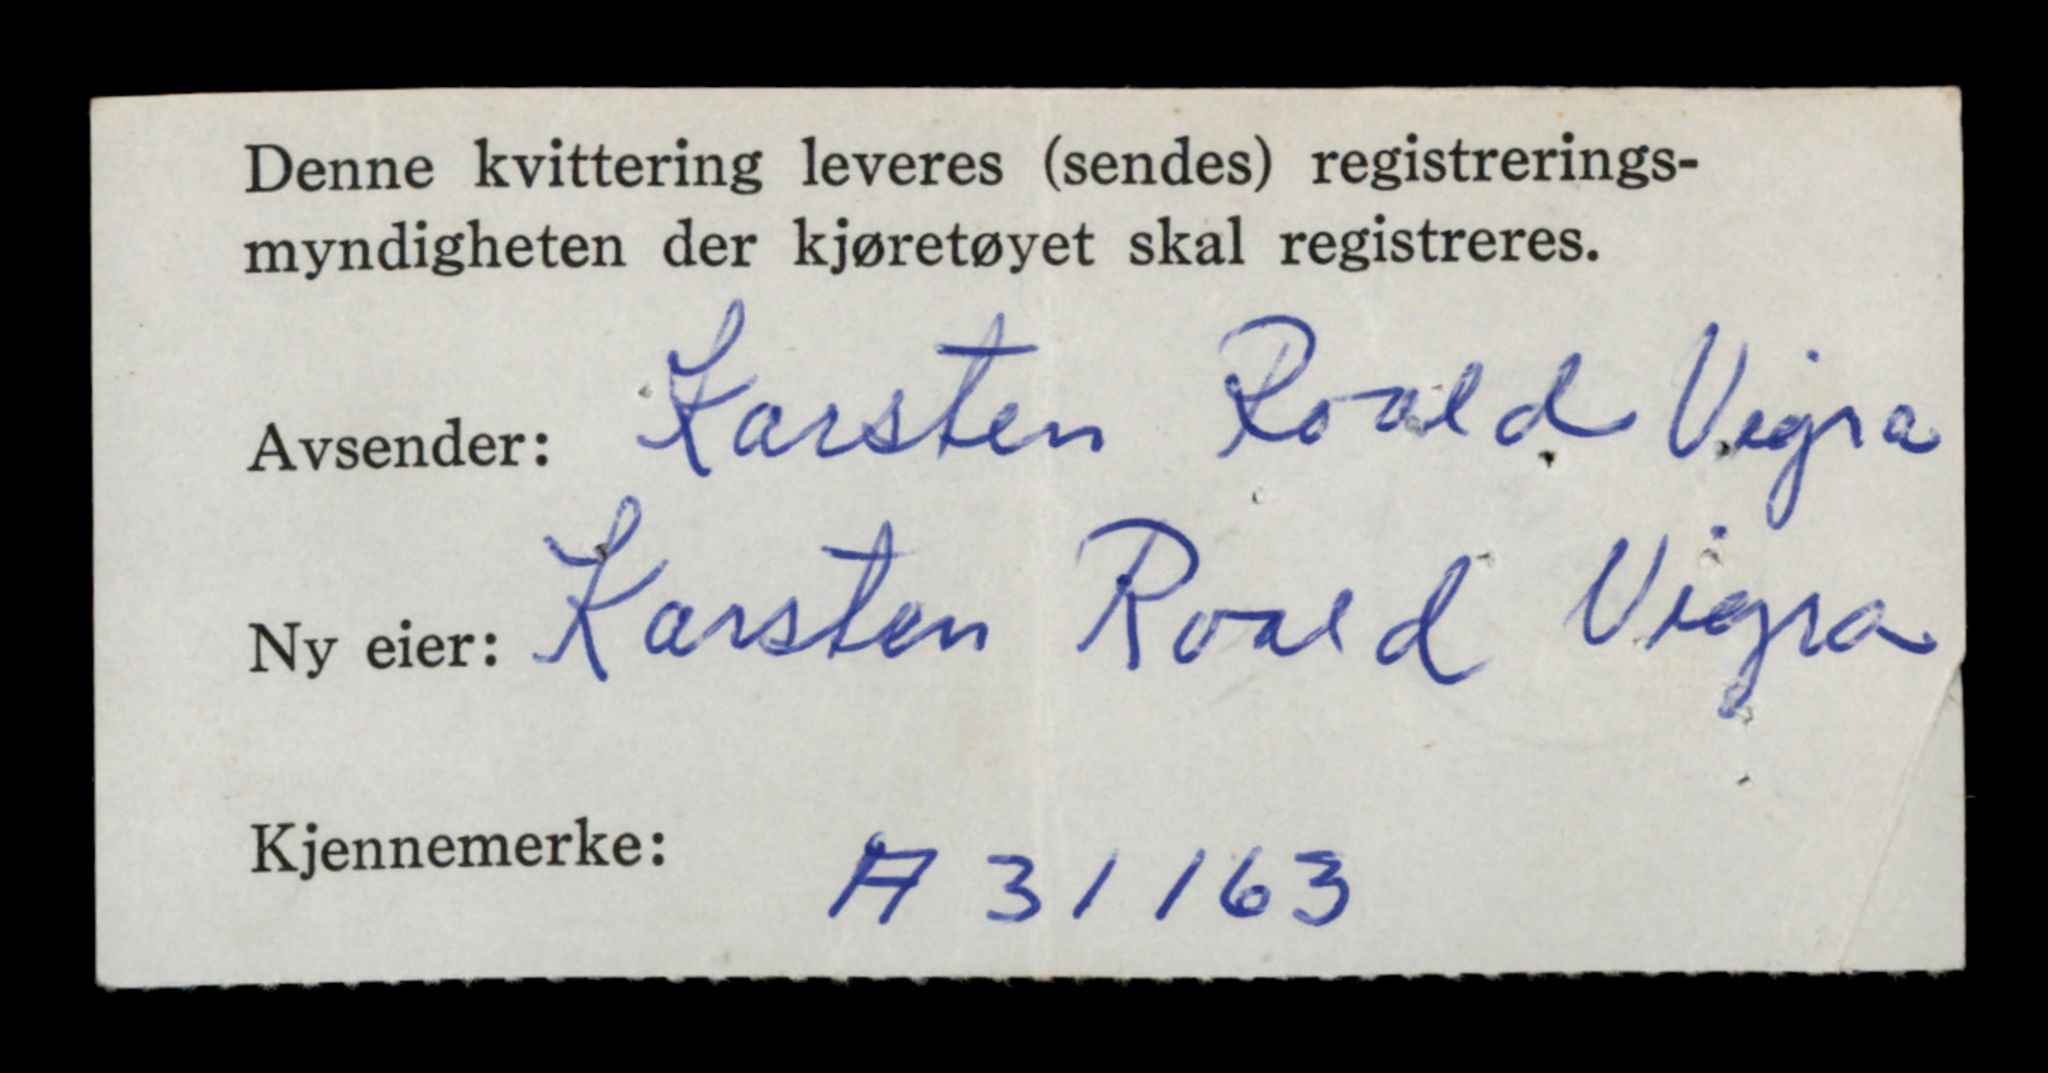 Denne kvittering leveres (sendes) registrerings-
myndigheten der kjøretøyet skal registreres.
Avsender: Karsten Roald Vigra
Ny eier: Karsten Roald Vigra
Kjennemerke: A 31163